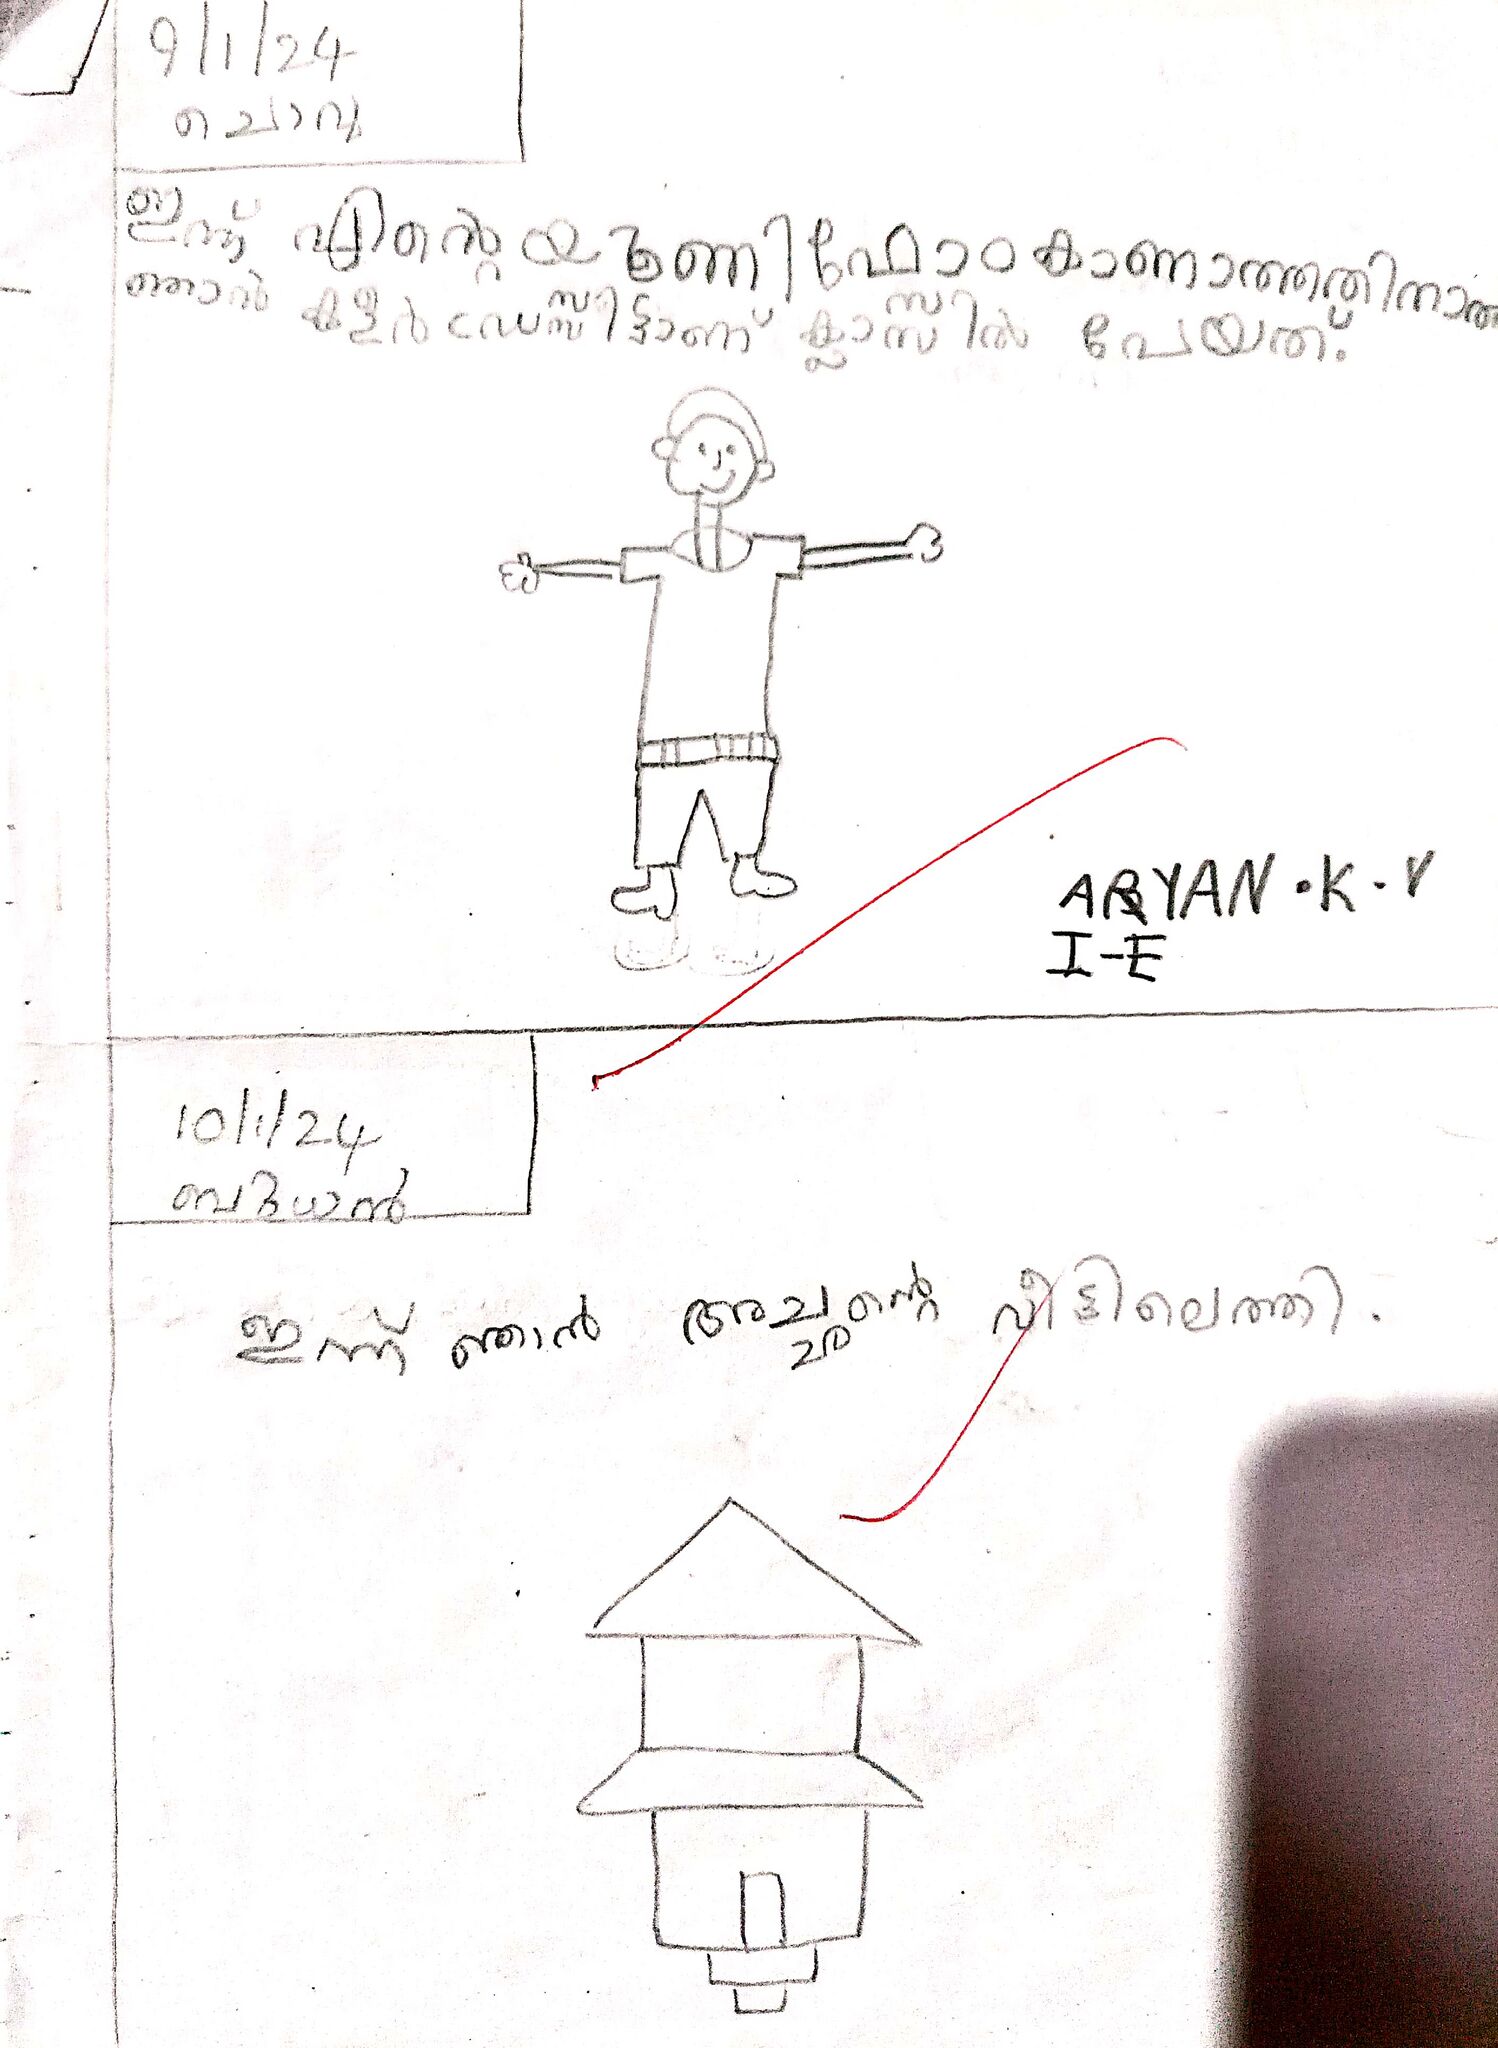 9/1/24
ചൊവ്വ
ഇന്ന് എന്റെ യൂണിഫോം കാണാത്തതിനാൽ
ഞാൻ കളർ ഡ്രസ്സിട്ടാണ് ക്ലാസ്സിൽ പോയത്.
ARYAN.K.V
I-E
10/1/24
ബുധൻ
ഇന്ന് ഞാൻ അച്ഛന്റെ വീട്ടിലെത്തി.